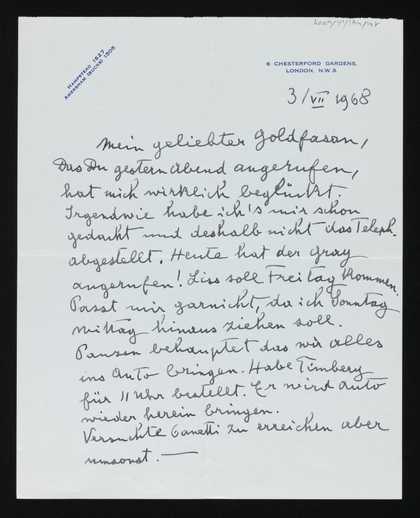 HAMPSTEAD 1827
AMERSHAM (BUCKS) 1905
6 CHESTERFORD GARDENS,
LONDON, N.W.3.
3/VII 1968
Mein geliebter Goldfasan,
Das Du gestern Abend angerufen,
hat mich wirklich beglückt.
Irgendwie habe ich's mir schon
gedacht und deshalb nicht das Teleph.
abgestellt. Heute hat der Gray
angerufen! Liss soll Freitag kommen.
Passt mir garnicht, da ich Sonntag
Mittag hinaus ziehen soll.
Pansen behauptet das wir alles
ins Auto bringen. Habe Timberg
für 11 Uhr bestellt. Er wird Auto
wieder herein bringen.
Versuchte Canetti zu erreichen aber
umsonst. —